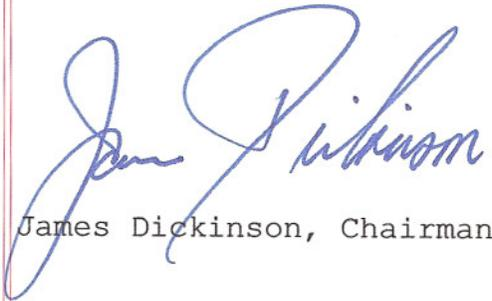 James Dickinson
James Dickinson, Chairman